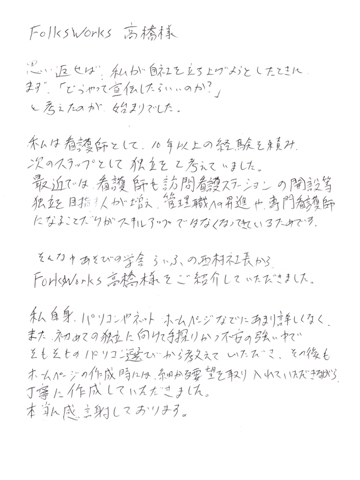 FolksWorks 高橋様
思い返せば、私が自社を立ち上げようとしたときに
まず、「どうやって宣伝したらいいのか?」
と考えたのが始まりでした。
私は看護師として、10年以上の経験を積み、
次のステップとして独立をと考えていました。
最近では看護師も訪問看護ステーションの開設等
独立を目指す人が増え、管理職への昇進や専門看護師
になることだけがスキルアップではなくなってきているためです。
そんな中あそびの学舎 らいふの西村社長から、
FolksWorks 高橋様をご紹介していただきました。
私自身、パソコンやネット、ホームページなどにあまり詳しくなく、
また、初めての独立に向けて手探りかつ不安の強い中で
そもそものパソコン選びから考えていただき、その後も
ホームページの作成時には、細かな要望を取り入れていただきながら
丁寧に作成していただきました。
本当に感謝しております。